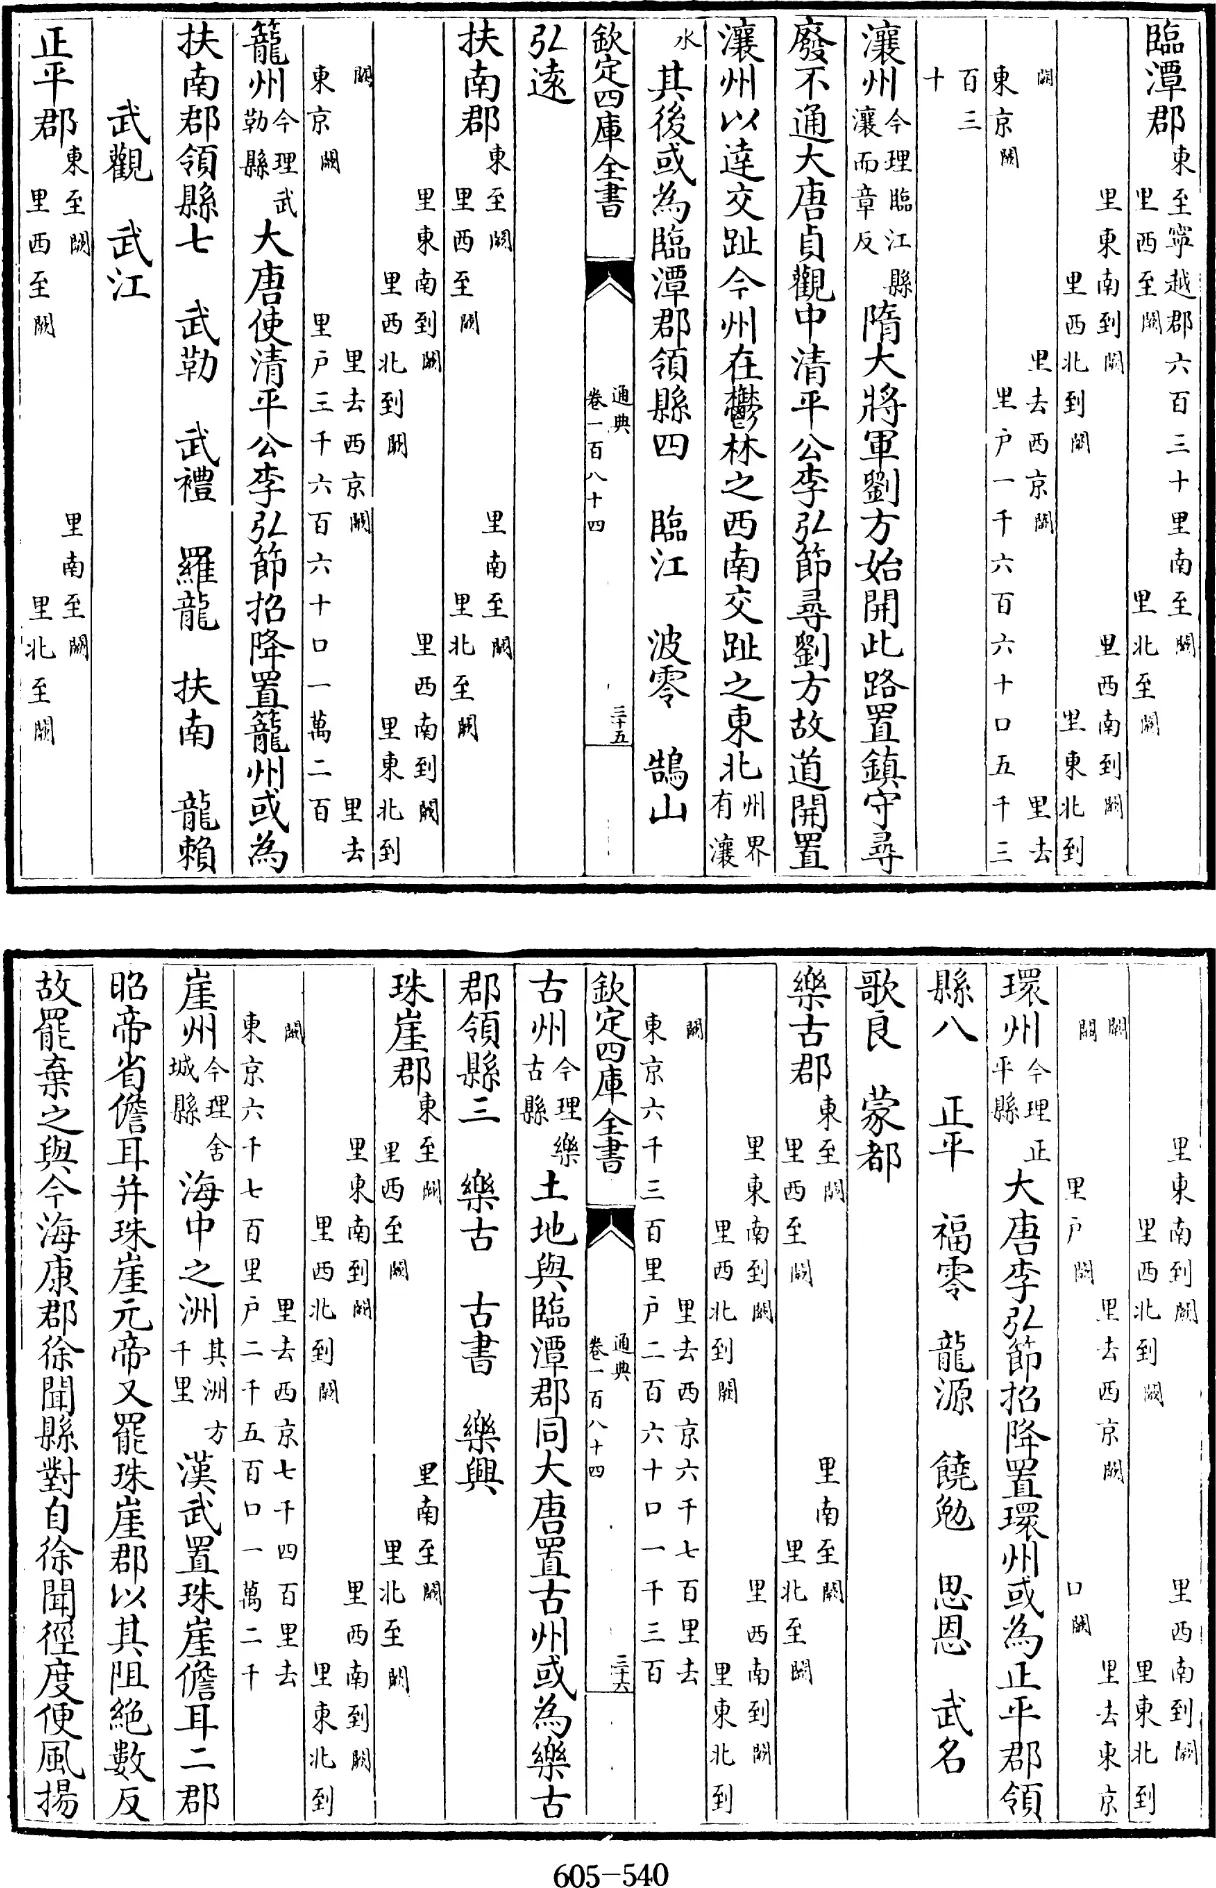 臨潭郡東至寧越郡六百三十里南至闕里西至闕里北至闕
里東南到闕里西南到闕里西北到闕里東北到
闕里去西京闕里去東京闕里户一千六百六十口五千三
百三十
瀼州今理臨江縣瀼而章反隋大將軍劉方始開此路置鎮守尋
廢不通大唐貞觀中清平公李弘節尋劉方故道開置
瀼州以達交趾今州在鬱林之西南交趾之東北州界有瀼
水其後或為臨潭郡領縣四 臨江 波零 鵠山
欽定四庫全書 通典 卷一百八十四 三十五
弘遠
扶南郡東至闕里南至闕里西至闕里北至闕
里東南到闕里西南到闕里西北到闕里東北到
闕里去西京闕里去東京闕里户三千六百六十口一萬二百
籠州今理武勒縣大唐使清平公李弘節招降置籠州或為
扶南郡領縣七 武勒 武禮 羅龍 扶南 龍賴
武觀 武江
正平郡東至闕里南至闕里西至闕里北至闕
里東南到闕里西南到闕里西北到闕里東北到
闕里去西京闕里去東京闕里户闕口闕
環州今理正平縣大唐李弘節招降置環州或為正平郡領
縣八 正平 福零 龍源 饒勉 思恩 武名
歌良 蒙都
樂古郡東至闕里南至闕里西至闕里北至闕
里東南到闕里西南到闕里西北到闕里東北到
闕里去西京六千七百里去東京六千三百里户二百六十口一千三百
欽定四庫全書 通典 卷一百八十四 三十六
古州今理樂古縣土地與臨潭郡同大唐置古州或為樂古
郡領縣三 樂古 古書 樂興
珠崖郡東至闕里南至闕里西至闕里北至闕
里東南到闕里西南到闕里西北到闕里東北到
闕里去西京七千四百里去東京六千七百里户二千五百口一萬二千
崖州今理舍城縣海中之洲其洲方千里漢武置珠崖儋耳二郡
昭帝省儋耳并珠崖元帝又罷珠崖郡以其阻絶數反
故罷棄之與今海康郡徐聞縣對自徐聞徑度便風揚
605-540